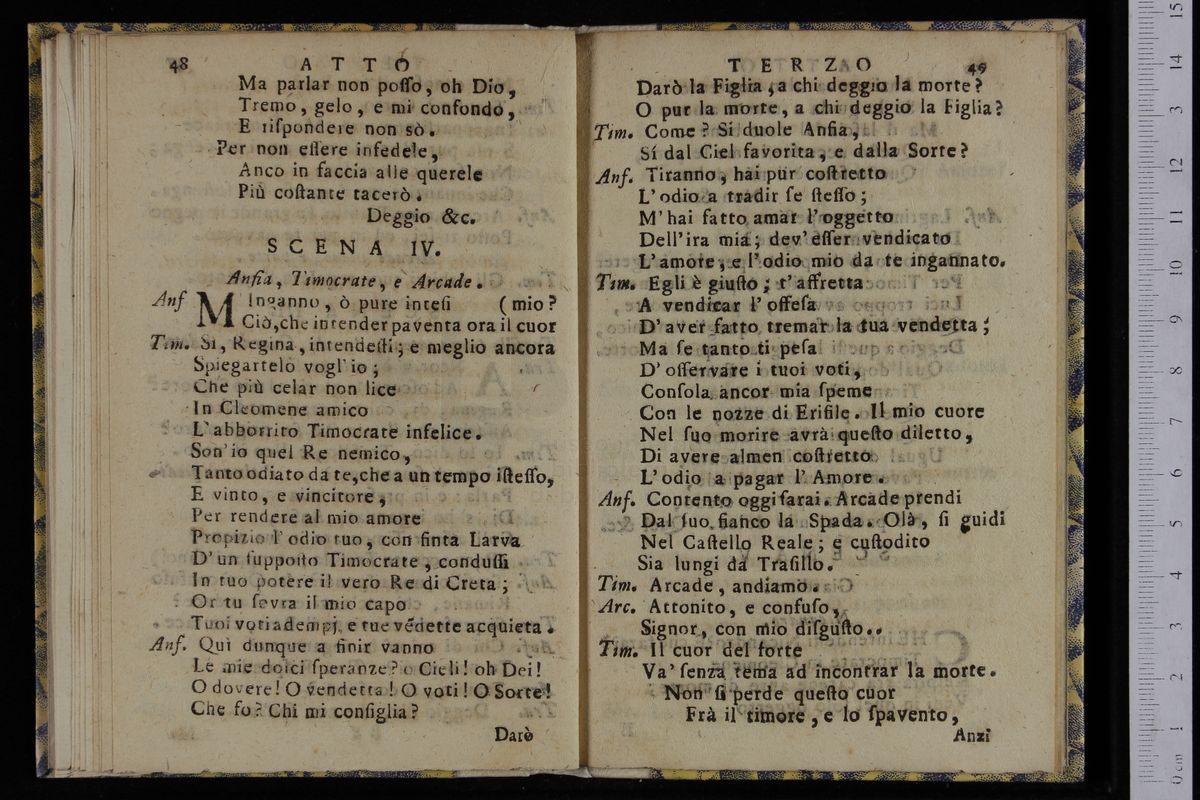 48 ATTO
Ma parlar non poſſo, oh Dio,
Tremo, gelo, e mi confondo,
E riſpondere non sò.
Per non eſſere infedele,
Anco in faccia alle querele
Più coſtante tacerò.
Deggio &c.
SCENA IV.
Anſia, Timocrate, e Arcade.
Anſ MInganno, ò pure inteſi (mio?
Ciò,che intender paventa ora il cuor
Tim. Si, Regina, intendeſti; e meglio ancora
Spiegartelo vogl'io;
Che più celar non lice
In Cleomene amico
L'abborrito Timocrate infelice.
Son'io quel Re nemico,
Tanto odiato da te,che a un tempo iſteſſo,
E vinto, e vincitore,
Per rendere al mio amore
Propizio l'odio tuo, con finta Larva
D'un ſuppoſto Timocrate, conduſſi
In tuo potere il vero Re di Creta;
Or tu ſovra il mio capo
Tuoi voti adempj, e tue vēdette acquieta.
Anſ. Quì dunque a finir vanno
Le mie dolci ſperanze? o Cieli! oh Dei!
O dovere! O vendetta! O voti! O Sorte!
Che fo? Chi mi conſiglia?
Darò
TERZO 49
Darò la Figlia, a chi deggio la morte?
O pur la morte, a chi deggio la Figlia?
Tim. Come? Si duole Anſia,
Sí dal Ciel favorita, e dalla Sorte?
Anſ. Tiranno, hai pur coſtretto
L'odio a tradir ſe ſteſſo;
M'hai fatto amar l'oggetto
Dell'ira mia; dev'eſſer vendicato
L'amore, e l'odio mio da te ingannato.
Tim. Egli è giuſto; t'affretta
A vendicar l'offeſa
D'aver fatto tremar la tua vendetta;
Ma ſe tanto ti peſa
D'oſſervare i tuoi voti,
Conſola ancor mia ſpeme
Con le nozze di Erifile. Il mio cuore
Nel ſuo morire avrà queſto diletto,
Di avere almen coſtretto
L'odio a pagar l'Amore.
Anſ. Contento oggi ſarai. Arcade prendi
Dal ſuo fianco la Spada. Olà, ſi guidi
Nel Caſtello Reale; e cuſtodito
Sia lungi da Traſillo.
Tim. Arcade, andiamo.
Arc. Attonito, e confuſo,
Signor, con mio diſguſto..
Tim. Il cuor del forte
Va' ſenza tema ad incontrar la morte.
Non ſi perde queſto cuor
Frà il timore, e lo ſpavento,
Anzi
0 cm 1 2 3 4 5 6 7 8 9 10 11 12 13 14 15